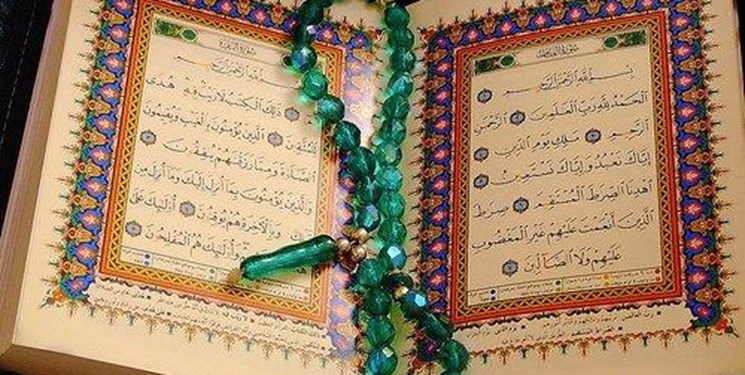 سورة الفاتحة
بسم الله الرحمن الرحيم
الحمد لله رب العلمين الرحمن
الرحيم ملك يوم الدين
إياك نعبد وإياك نستعين
اهدنا الصرط المستقيم صرط
الذين أنعمت عليهم غير المغضوب
عليهم ولا الضالين
سورة البقرة
بسم الله الرحمن الرحيم
ذلك الكتب لا ريب فيه هدى
للمتقين الذين يؤمنون بالغيب ويقيمون
الصلوة ومما رزقنهم ينفقون
والذين يؤمنون بما أنزل إليك وما أنزل من
وبالأخرة هم يوقنون أولئك على
وأولئك هم المفلحون